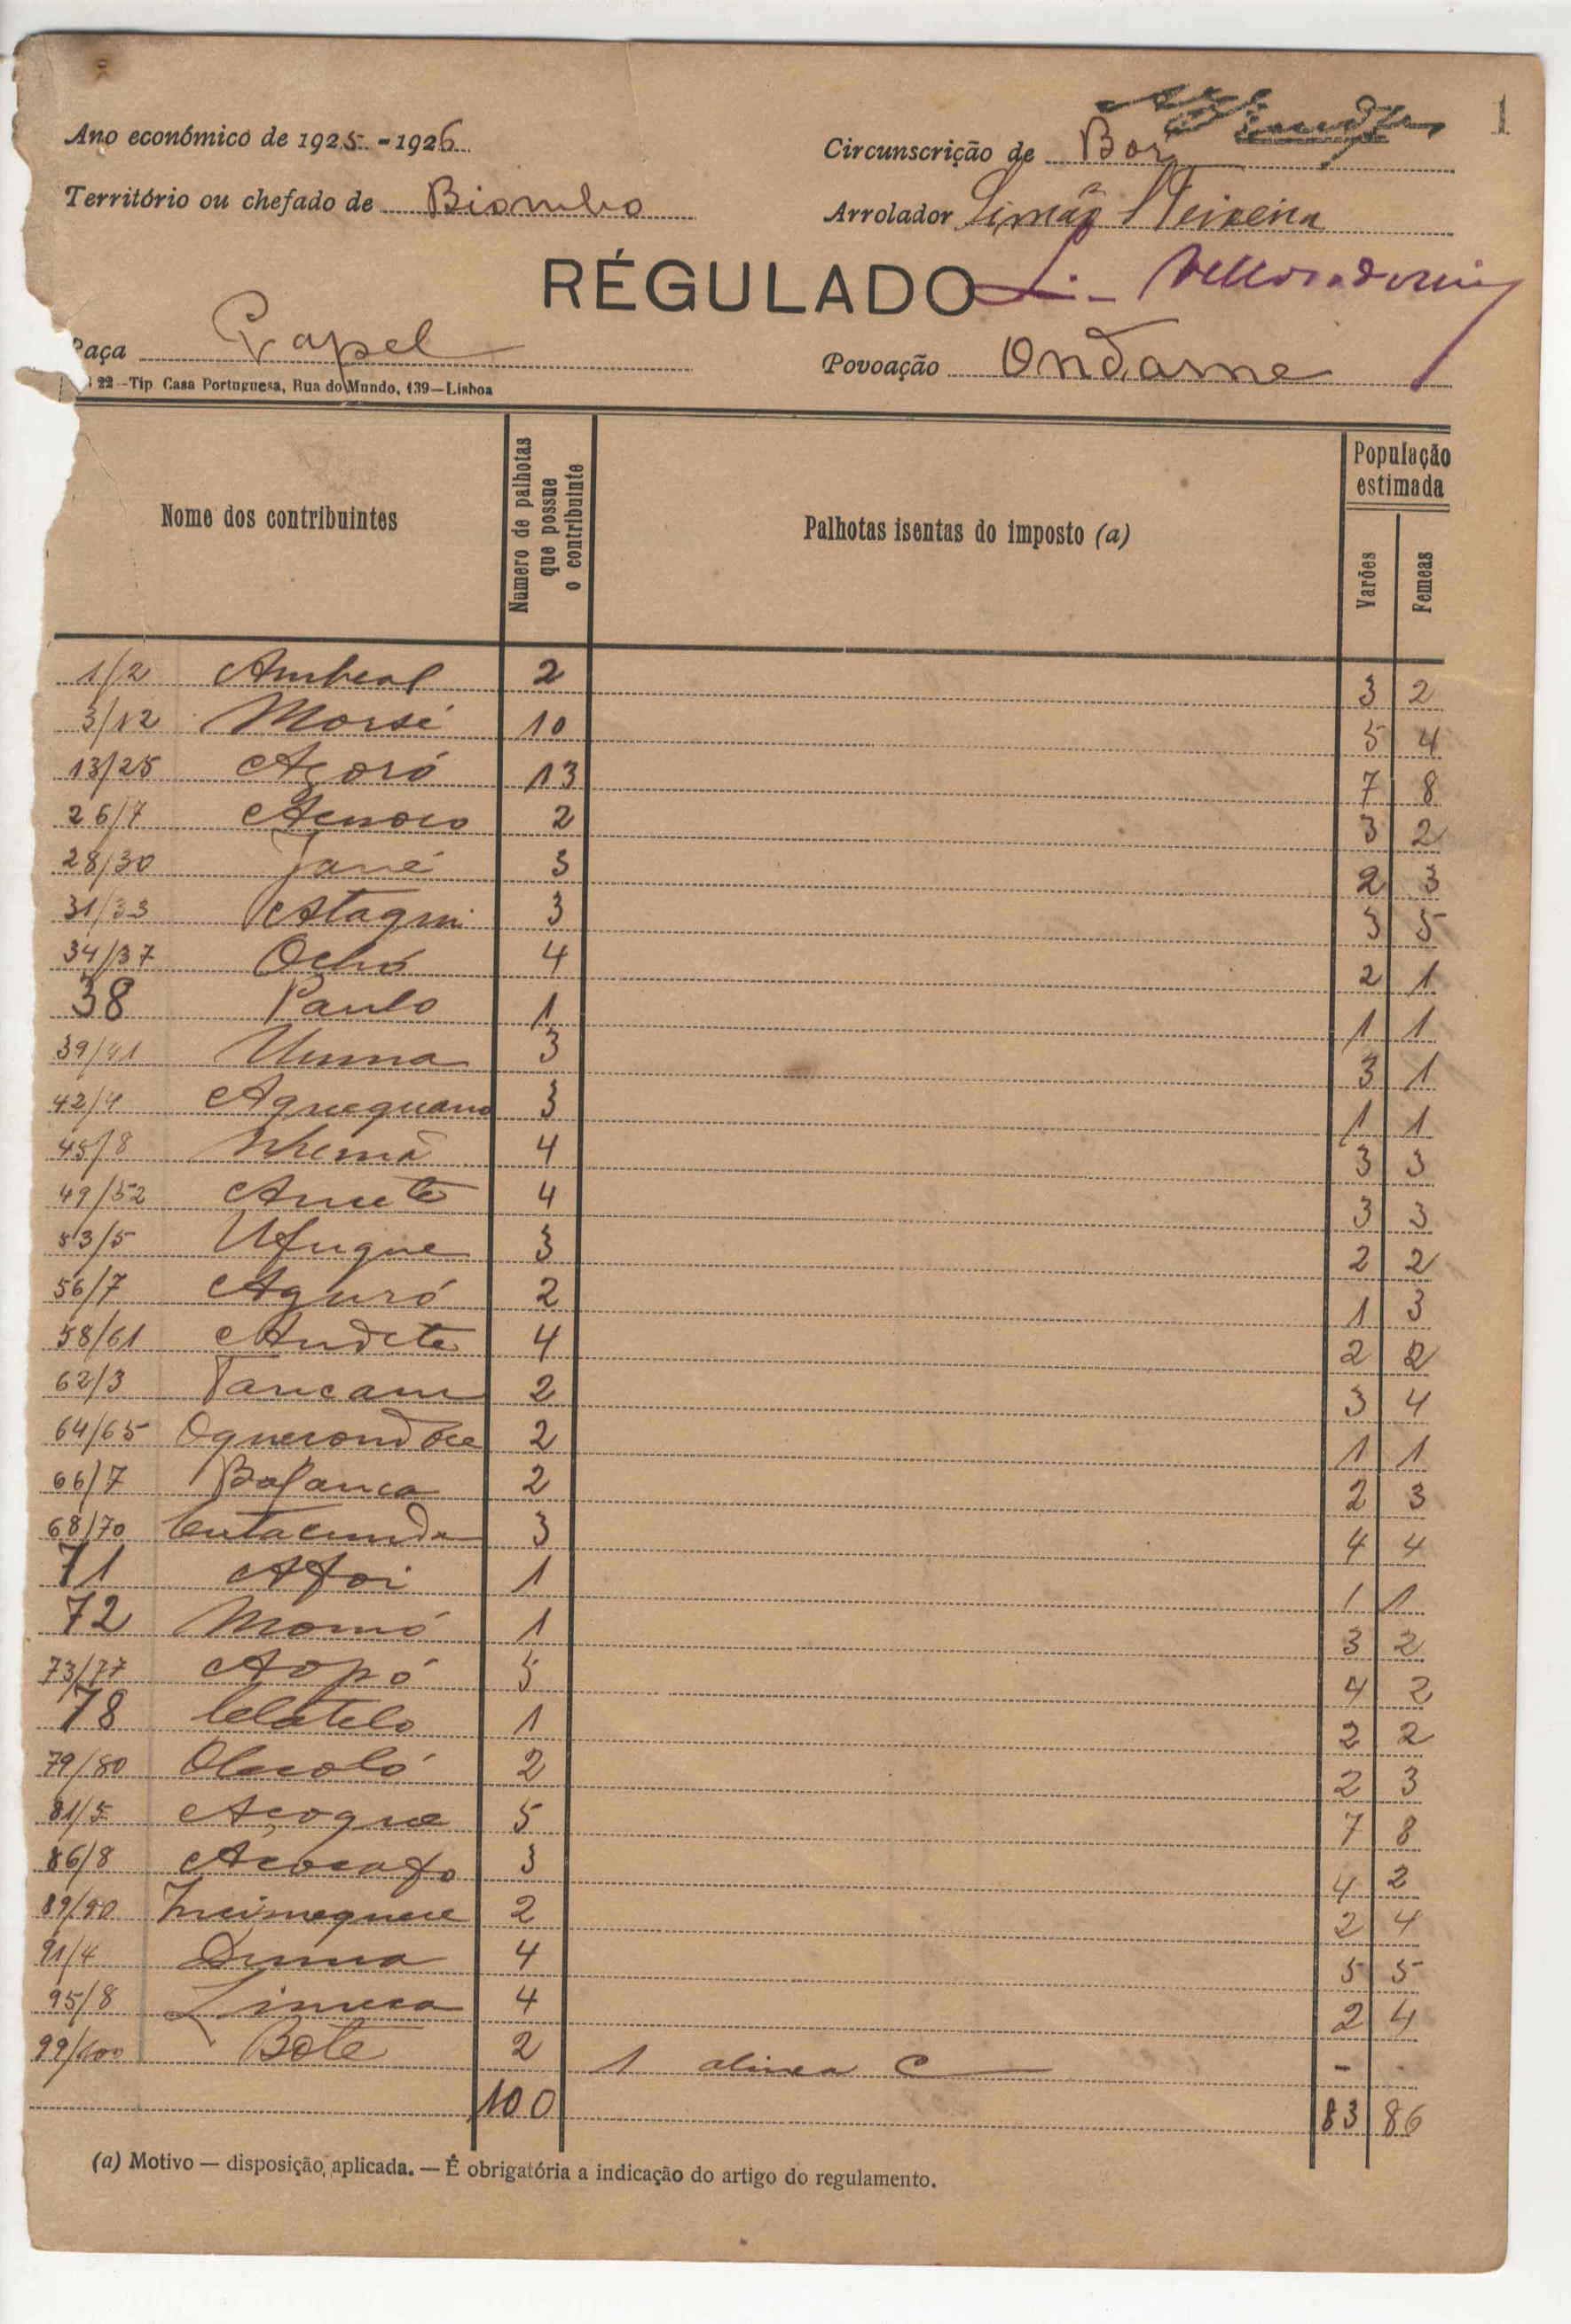 1
Ano económico de 1925-1926
Circunscrição de Bor
Território ou chefado de Biombo
Arrolador Simão Teixeira
RÉGULADO
Raça Papel
Povoação Ondame
22-Tip. Casa Portuguesa, Rua do Mundo, 139-Lisboa
Nome dos contribuintes
Numero de palhotas que possue o contribuinte
Palhotas isentas do imposto (a)
População estimada
Varões
Femeas
1/2 Ambeal 2 3 2
3/12 Morsé 10 5 4
13/25 Açoró 13 7 8
26/7 2 3 2
28/30 Jané 3 2 3
31/33 Atagui 3 3 5
34/37 Ochó 4 2 1
38 Paulo 1 1 1
39/41 Unma 3 3 1
42/4 3 1 1
45/8 4 3 3
49/52 4 3 3
53/5 Ufugue 3 2 2
56/7 Aguró 2 1 3
58/61 Andete 4 2 2
62/3 2 3 4
64/65 2 1 1
66/7 Bafanca 2 2 3
68/70 3 4 4
71 Afoi 1 1 1
72 Momó 1 3 2
73/77 Aopó 5 4 2
78 1 2 2
79/80 2 2 3
81/5 Açogue 5 7 8
86/8 3 4 2
89/90 2 2 4
91/4 4 5 5
95/8 4 2 4
99/100 Bote 2 1 alinea C - -
100 83 86
(a) Motivo — disposição aplicada. — É obrigatória a indicação do artigo do regulamento.